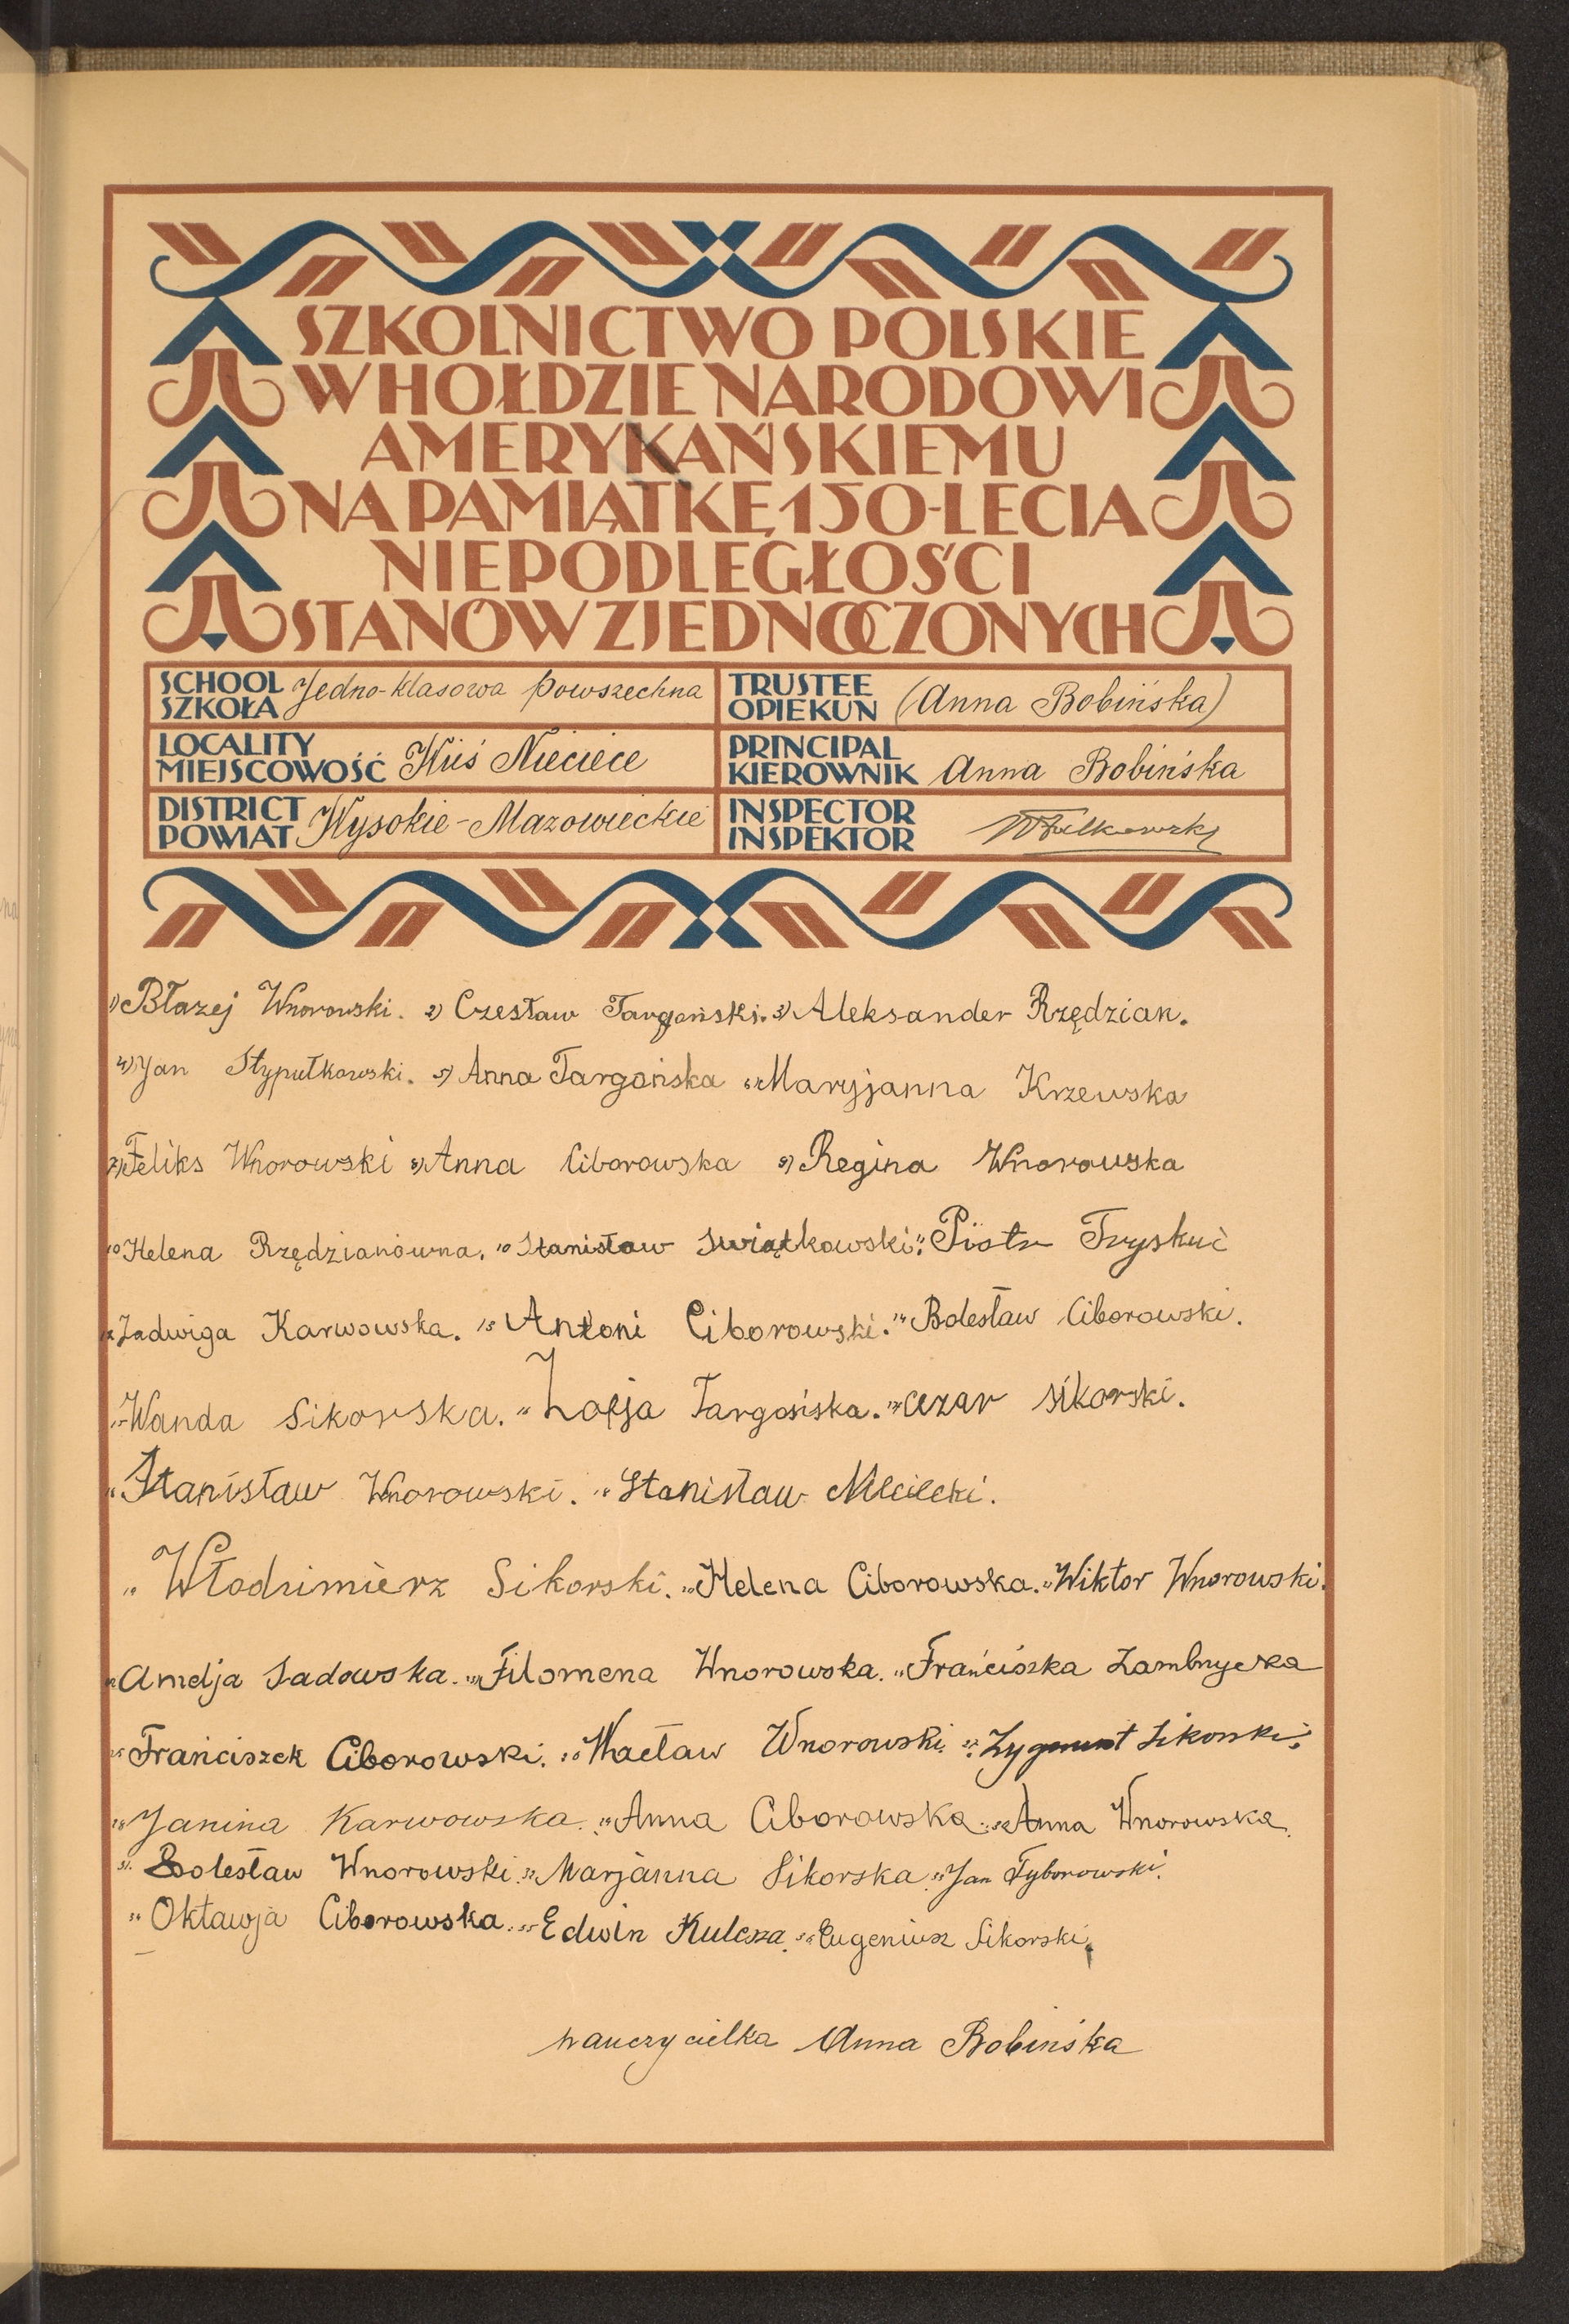 SZKOLNICTWO POLSKIE
W HOŁDZIE NARODOWI
AMERYKAŃSKIEMU
NA PAMIĄTKĘ 150-LECIA
NIEPODLEGŁOŚCI
STANÓW ZJEDNOCZONYCH
SCHOOL SZKOŁA Jedno-klasowa Powszechna
TRUSTEE OPIEKUN (Anna Bobińska)
LOCALITY MIEJSCOWOŚĆ Wieś Nieciece
PRINCIPAL KIEROWNIK Anna Bobińska
DISTRICT POWIAT Wysokie-Mazowieckie
INSPECTOR INSPEKTOR
1) Błazej Wnorowski. 2) Czesław Targoński. 3) Aleksander Rzędzian.
4) Jan Stypułkowski. 5) Anna Targońska 6) Maryjanna Krzewska
7) Feliks Wnorowski 8) Anna Ciborowska 9) Regina Wnorowska
10 Helena Rzędzianówna. 10 Stanisław Swiątkowski. 11 Piotr Tryskuć
12 Jadwiga Karwowska. 13 Antoni Ciborowski. 14 Bolesław Ciborowski.
15 Wanda Sikorska. 16 Zofja Targońska. 17 Cezar Sikorski.
18 Stanisław Wnorowski. 18 Stanisław Niciecki.
19 Włodzimierz Sikorski. 20 Helena Ciborowska. 21 Wiktor Wnorowski.
22 Amelja Sadowska. 23 Filomena Wnorowska. 24 Frańciszka Zambrycka
25 Frańciszek Ciborowski. 26 Wacław Wnorowski. 27 Zygmunt Sikorski.
28 Janina Karwowska. 29 Anna Ciborowska. 30 Anna Wnorowska.
31. Bolesław Wnorowski. 32 Marjanna Sikorska. 33 Jan Tyborowski.
34 Oktawja Ciborowska. 35 Edwin Kulesza. 36 Eugeniusz Sikorski.
nauczycielka Anna Bobińska